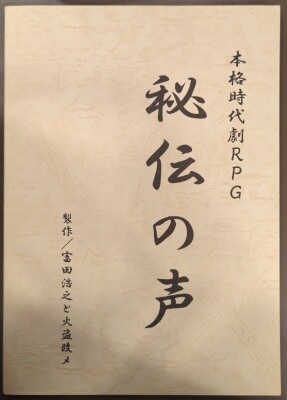 本格時代劇RPG
秘伝の声
製作／富田浩之と火盗改メ